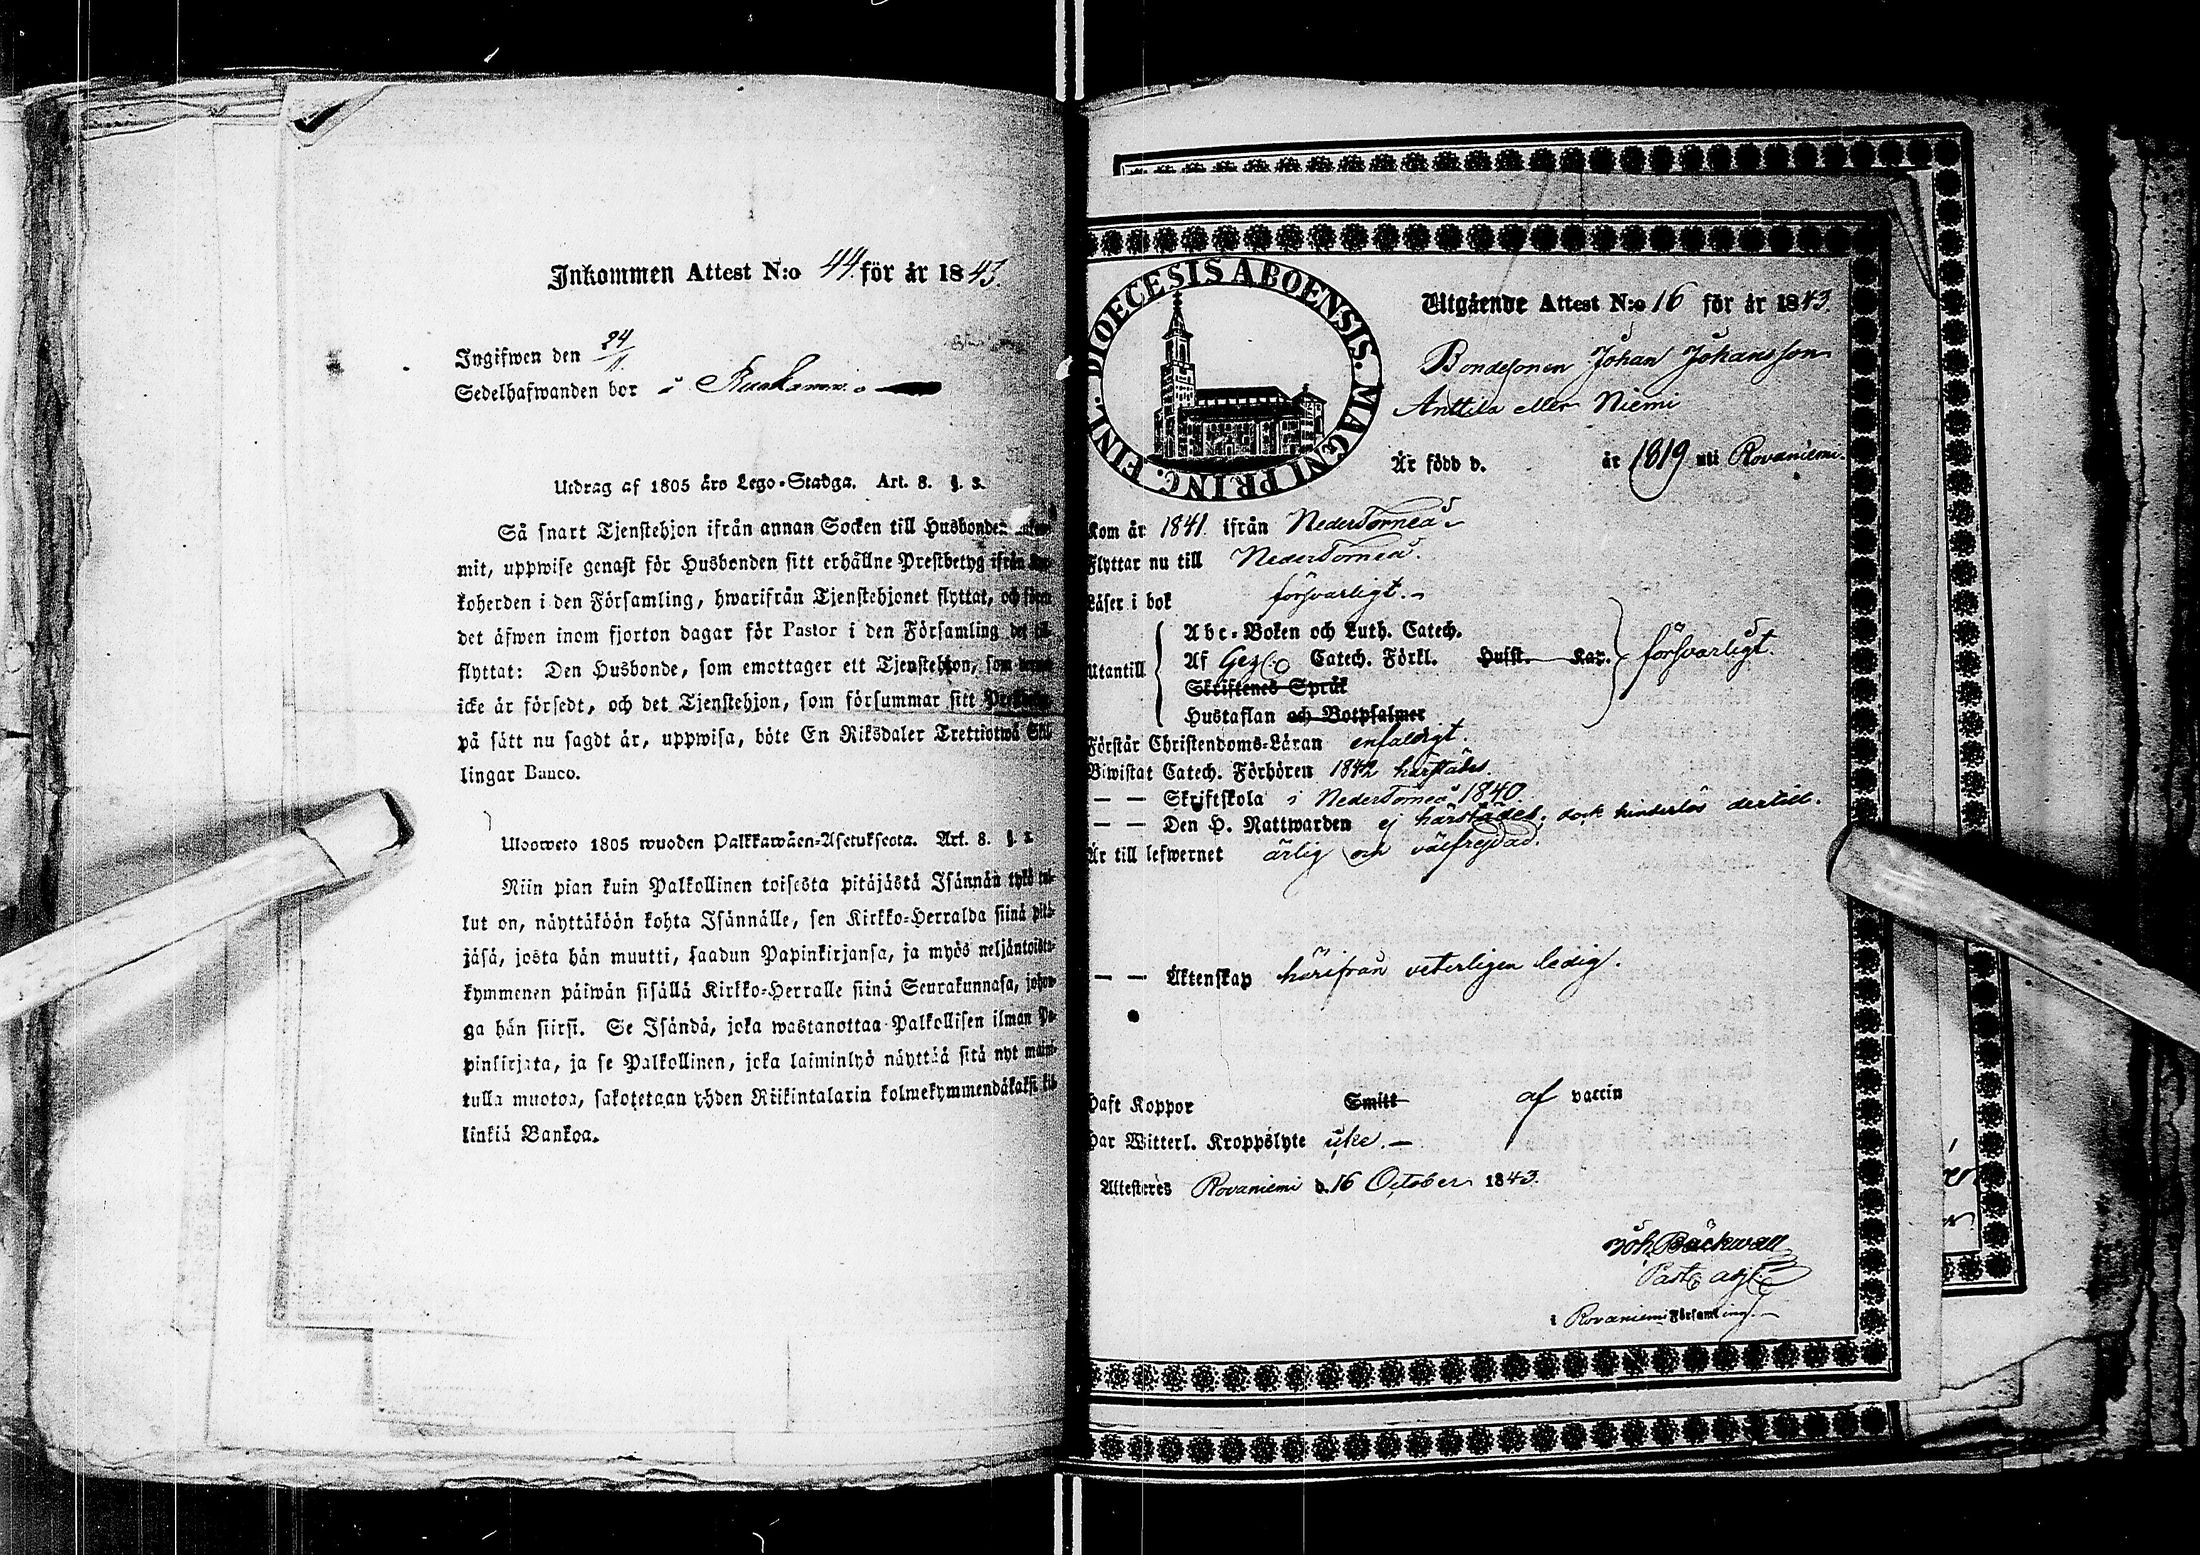 Inkommen Attest N:o 44. för år 1843.
Ingifwen den 24/11
Sedelhafwanden bor i
Utdrag af 1805 års Lego-Stadga. Art. 8. §. 3.
Så snart Tjenstehjon ifrån annan Socken till Husbonden
mit, uppwise genast för Husbonden sitt erhållne Prestbetyg ifrån
koherden i den Församling, hwarifrån Tjenstehjonet flyttat, och
det äfwen inom fjorton dagar för Pastor i den Församling det
flyttat: Den Husbonde, som emottager ett Tjenstehjon, som
icke är försedt, och det Tjenstehjon, som försummar sitt
på sätt nu sagdt är, uppwisa, böte En Riksdaler Trettiotwå Skil-
lingar Banco.
Ulosweto 1805 wuoden Palkkawäen-Asetuksesta. Art. 8. §. 3.
Niin pian kuin Palkollinen toisesta pitäjästä Isännän tykö tul-
lut on, näyttäköön kohta Isännälle, sen Kirkko-Herralda siinä pitä-
jäsä, josta hän muutti, saadun Papinkirjansa, ja myös neljäntoista-
kymmenen päiwän sisällä Kirkko-Herralle siinä Seurakunnasa, johon-
ga hän siirsi. Se Isändä, joka wastanottaa Palkollisen ilman Pa-
pinkirjata, ja se Palkollinen, joka laiminlyö näyttää sitä nyt maini-
tulla muotoa, sakotetaan yhden Riikintalarin kolmekymmendäkaksi kil-
linkiä Bankoa.
DIOECESIS ABOENSIS. MAGNI PRINC. FINL.
Utgående Attest N:o 16 för år 1843.
Bondesonen Johan Johansson
Anttila eller Niemi
Är född d. år 1819 uti Rovaniemi.
Kom år 1841. ifrån Neder Torneå
Flyttar nu till Neder Torneå.
Läser i bok försvarligt.
Utantill
Abc-Boken och Luth. Catech.
Af Gez Catech. Förkl. Hufst. Kap. försvarligt.
Skriftenes Språk
Hustaflan och Botpsalmer
Förstår Christendoms-Läran enfaldigt.
Biwistat Catech. Förhören 1842 härstädes.
— — Skriftskola i Neder Torneå 1840.
— — Den H. Nattwarden ej härstädes, dock hinderlös dertill.
Är till lefwernet ärlig och välfrejdad.
— — Äktenskap härifrån veterligen ledig.
Haft Koppor Smitt af vaccin
Har Witterl. Kroppslyte icke. —
Attesteres Rovaniemi d. 16 October 1843.
Joh. Bäckwall
Past. adj.
i Rovaniemi Församling.